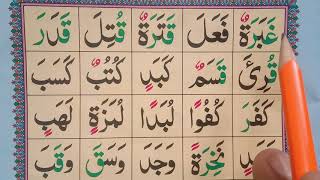 غَبَرَةٌ فَعَلَ قَتَرَةٌ قُتِلَ قَدَرَ
قُرِئَ قَسَمٌ كَبَدٍ كُتُبٌ كَسَبَ
كَفَرَ كُفُوًا لُبَدًا لُمَزَةٍ لَهَبٍ
نَخِرَةً وَجَدَ وَسَقَ وَقَبَ